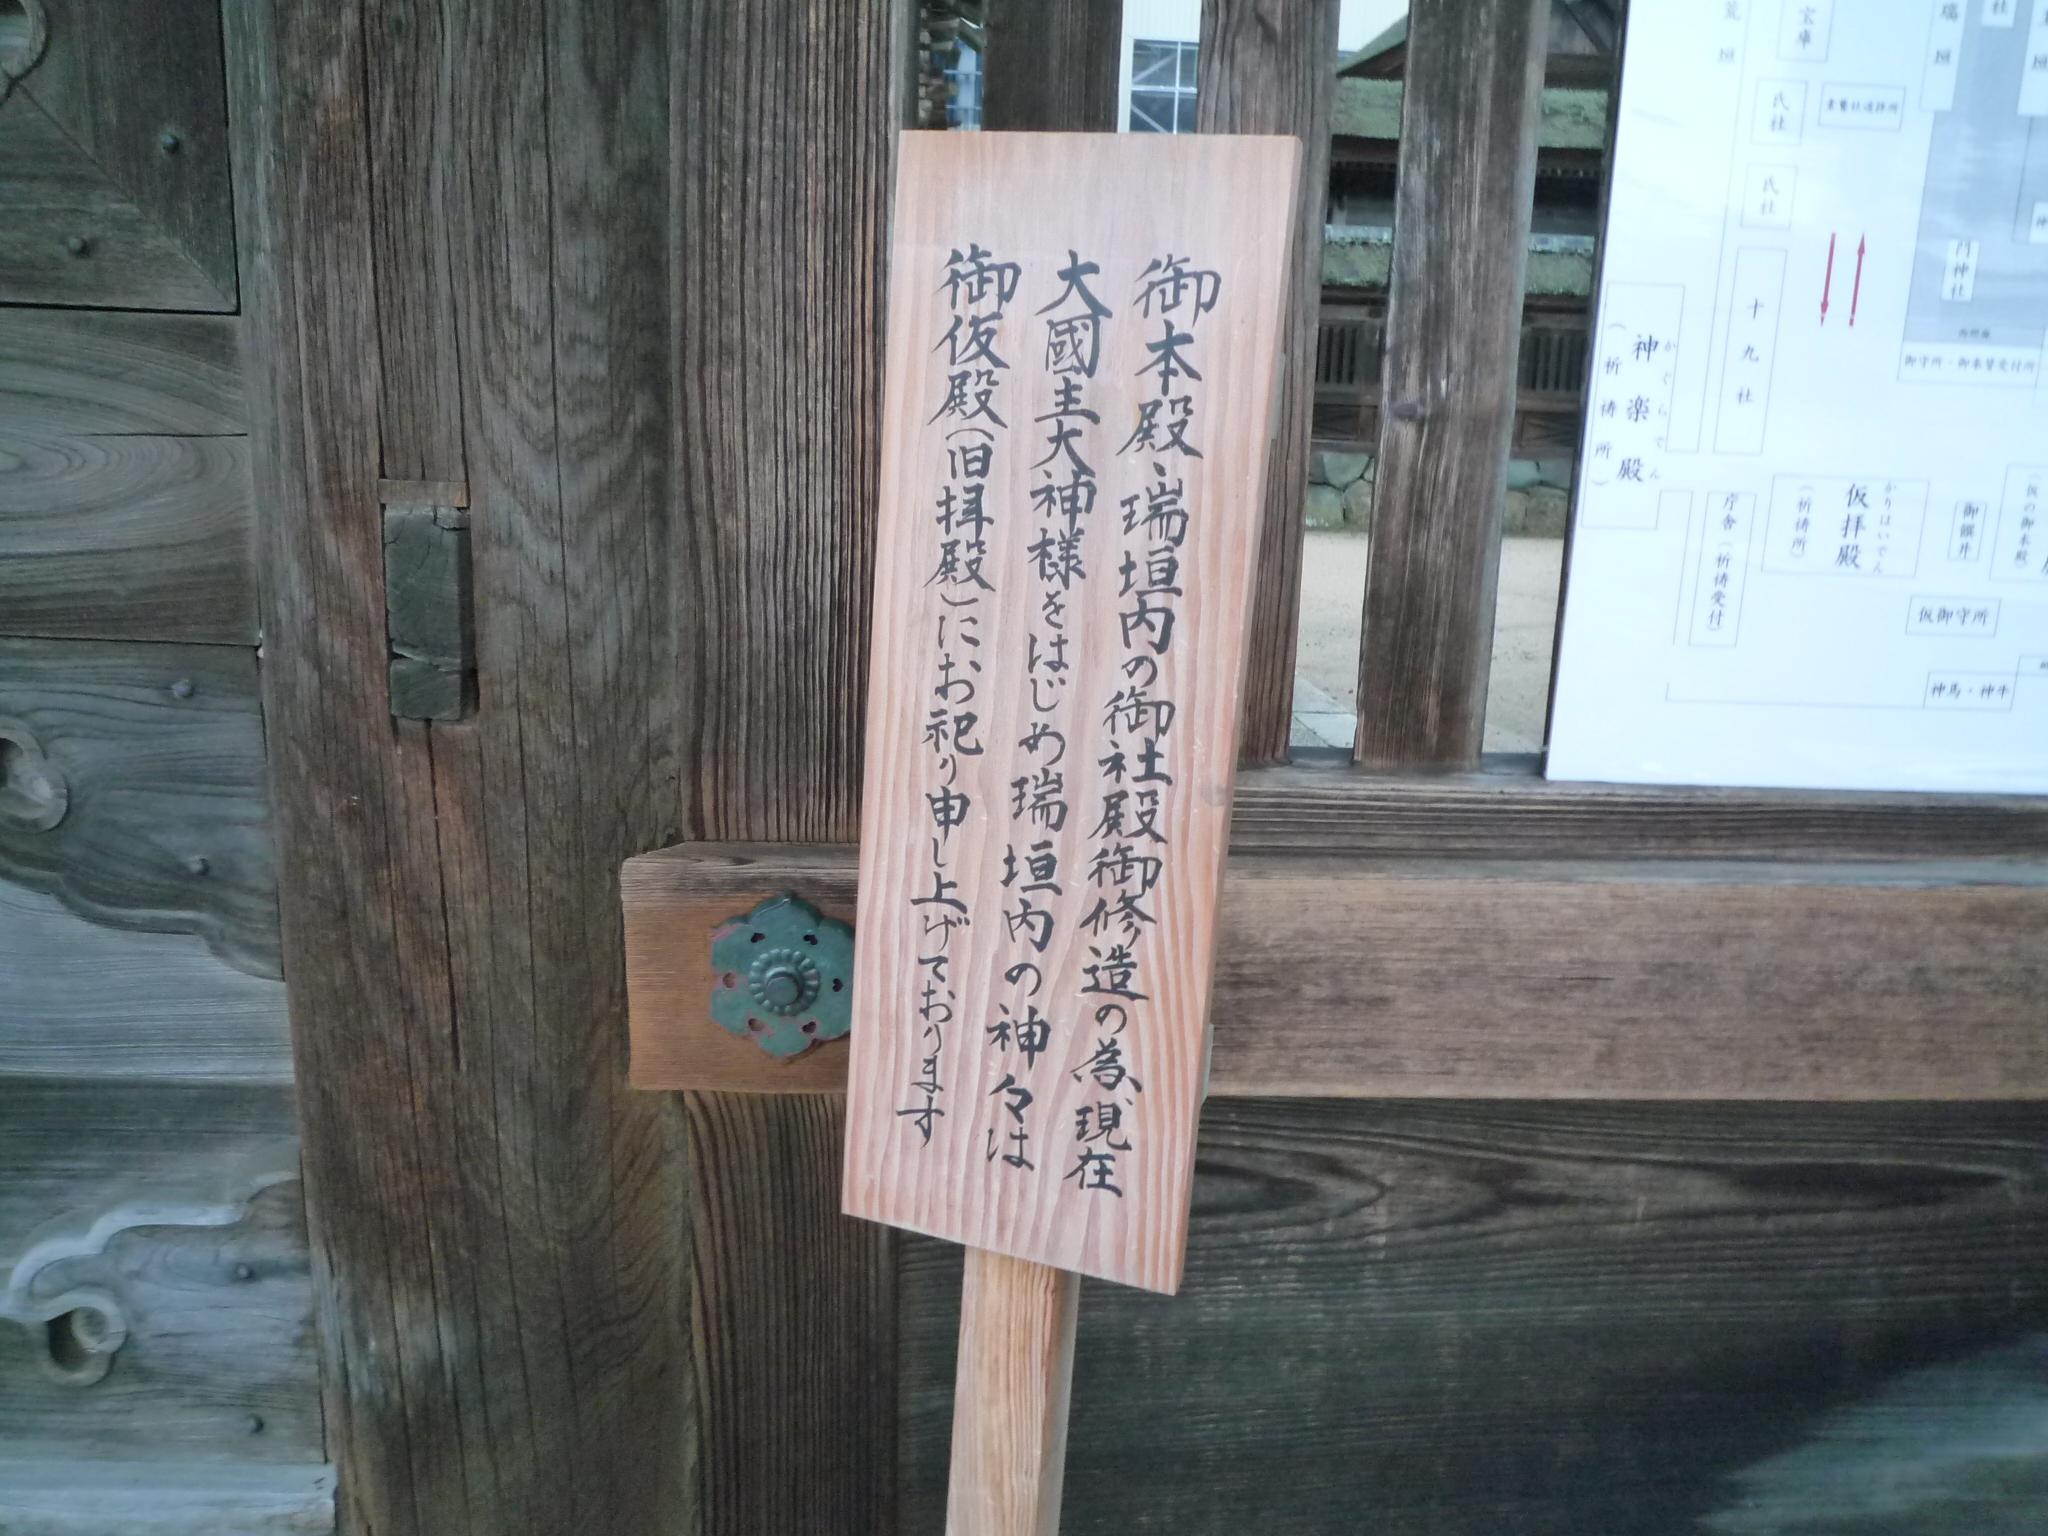 御本殿、瑞垣内の御社殿御修造の為、現在
大國主大神様をはじめ瑞垣内の神々は
御仮殿(旧拝殿)にお祀り申し上げております
荒垣
宝庫
瑞垣
社
氏社
素鵞社遥拝所
氏社
門神社
十九社
御守所・御本殿受付所
かぐらでん
神楽殿
(祈祷所)
庁舎(祈祷受付)
かりはいでん
仮拝殿
(祈祷所)
御饌井
(仮の御本殿)
仮御守所
神馬・神牛